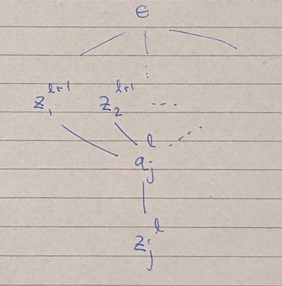 ϵ
z₁^{l+1} z₂^{l+1} ...
a_j^l
z_j^l